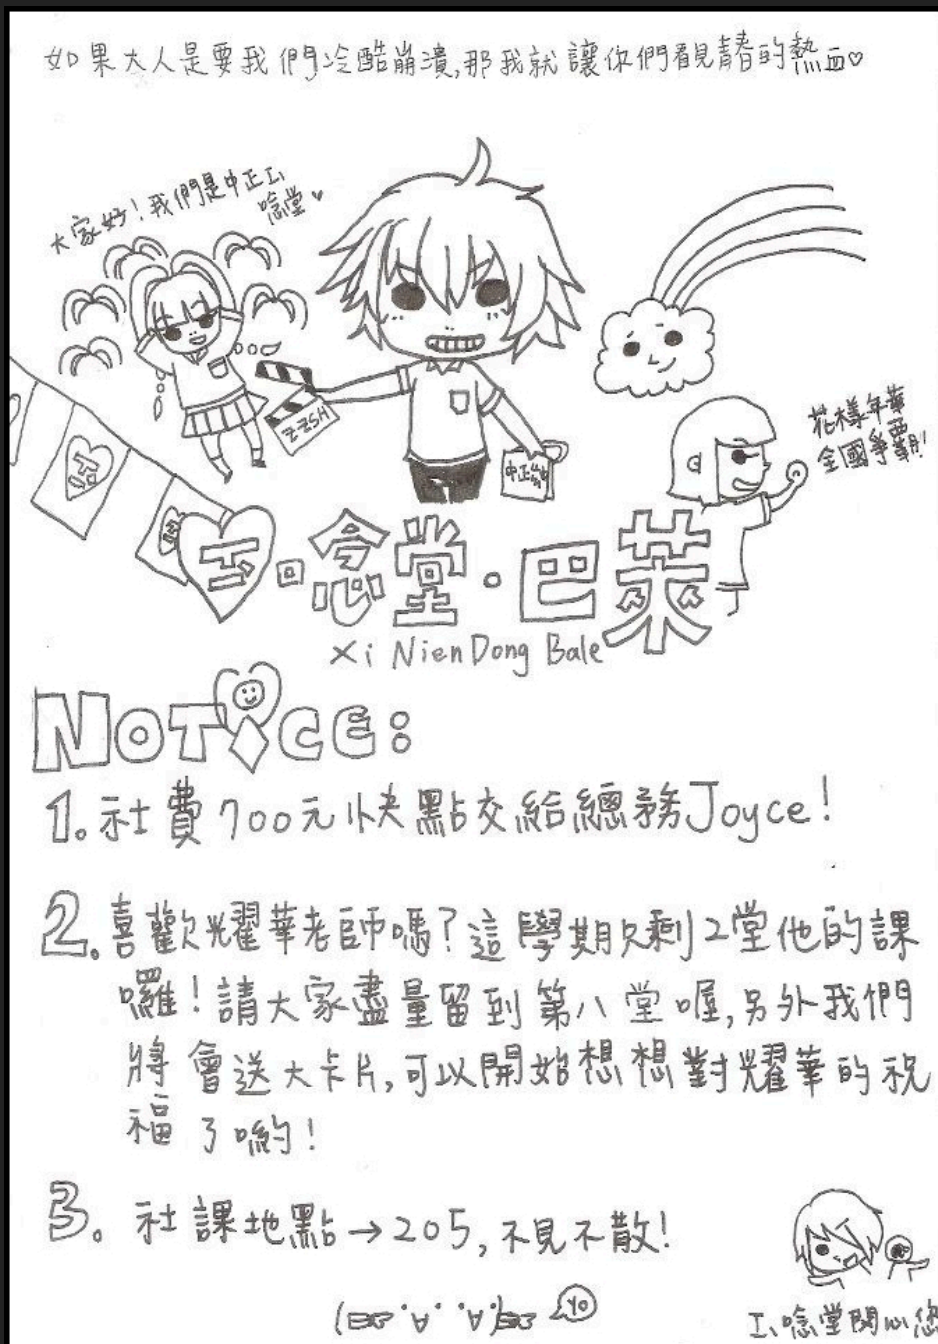 如果大人是要我們冷酷崩潰,那我就讓你們看見青春的熱血♡
大家好!我們是中正工
唸堂♥
ZZSH
花樣年華
全國爭霸!
工·唸堂·巴萊
Xi Nien Dong Bale
NOTiCE:
1.社費700元快點交給總務Joyce!
2.喜歡耀華老師嗎?這學期只剩2堂他的課
囉!請大家盡量留到第八堂喔,另外我們
將會送大卡片,可以開始想想對耀華的祝
福了喲!
3.社課地點→205,不見不散!
yo
工唸堂關心您